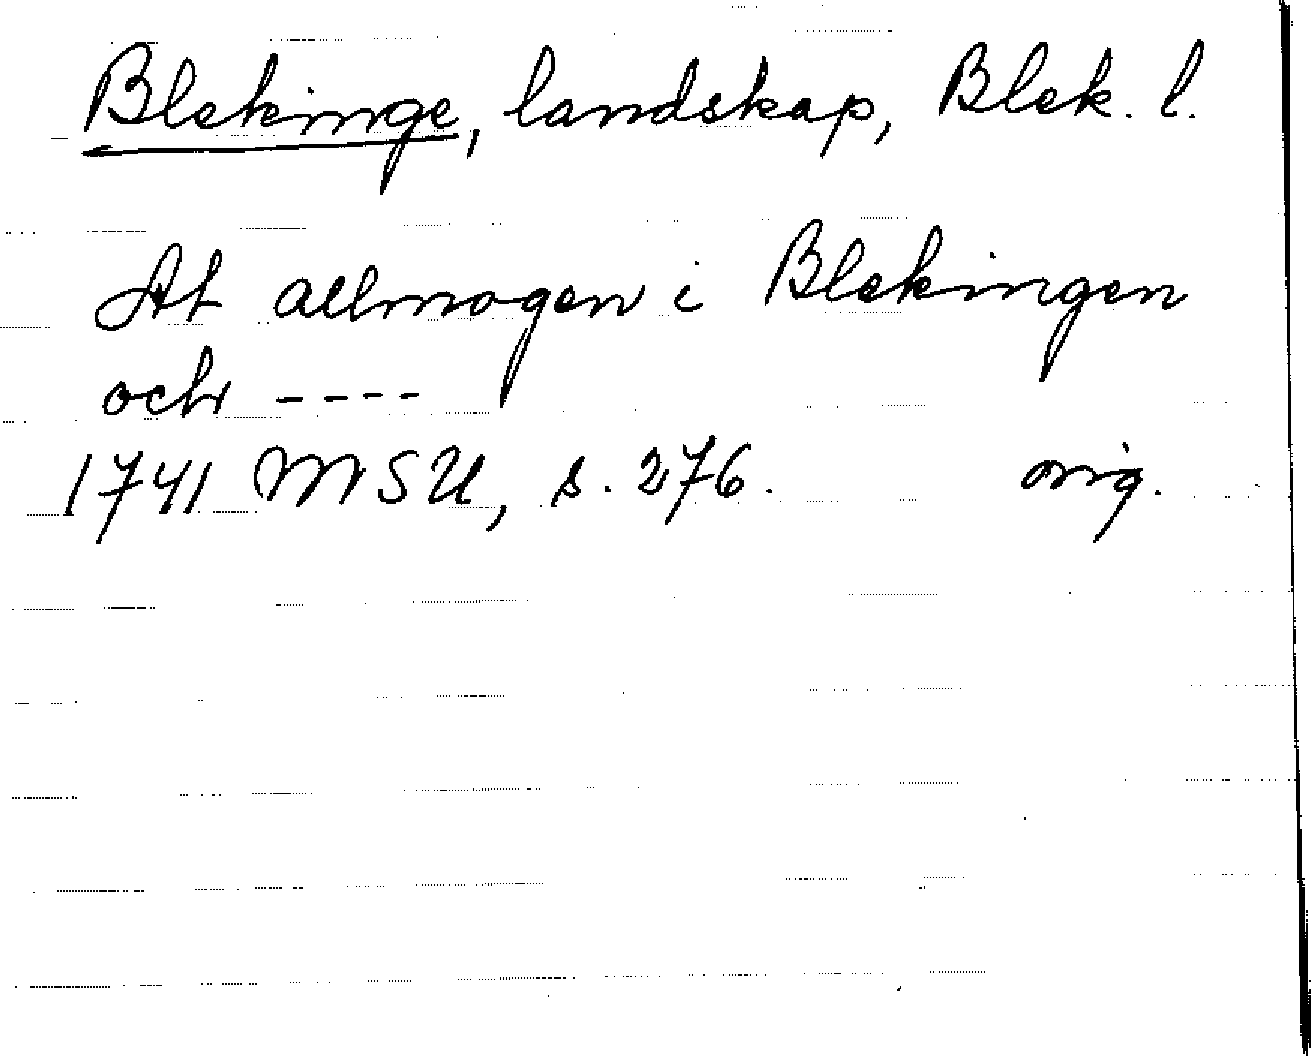 Blekinge, landskap, Blek. l.
At allmogen i Blekingen
och ----
1741 MSU, s. 276. orig.